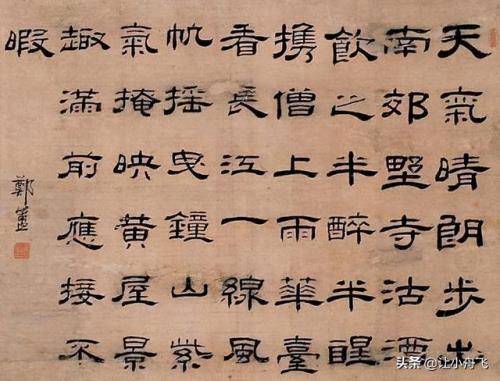 天氣晴朗步出
南郊墅寺沽酒
飲之半醉半醒
携僧上雨華臺
看長江一線風
帆摇曳鐘山紫
氣掩映黄屋景
趣滿前應接不
暇
鄭簠
头条 @让小舟飞